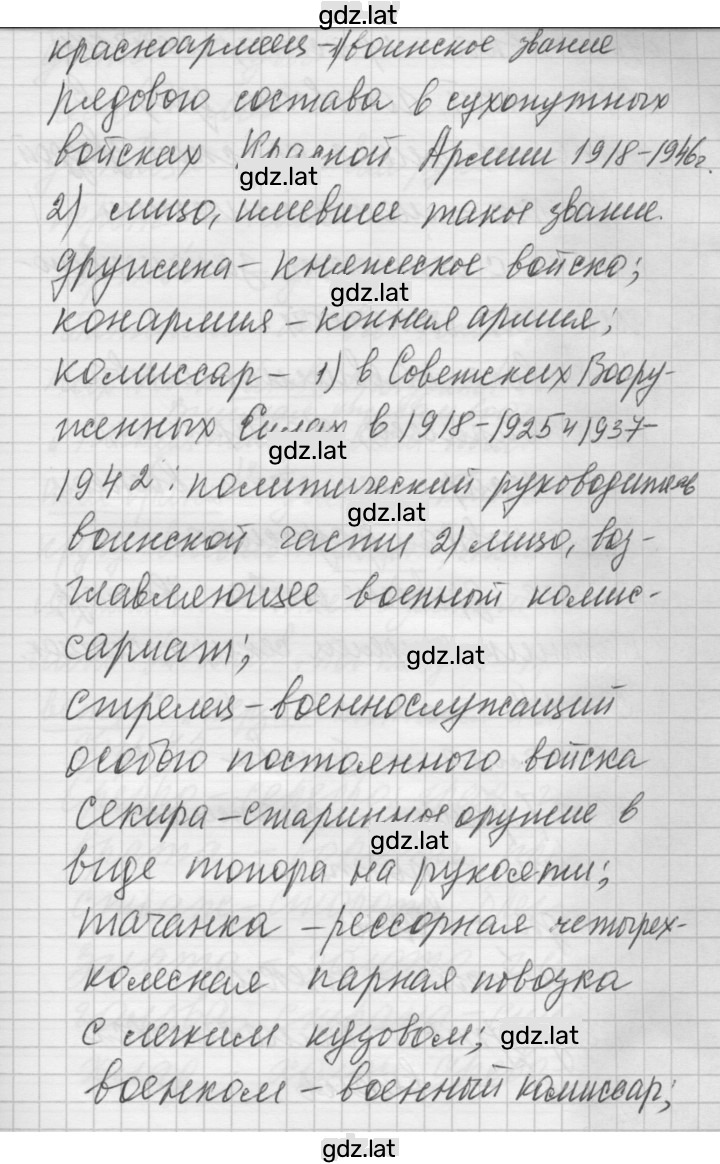 gdz.lat
красноармеец – 1) воинское звание
рядового состава в сухопутных
войсках Красной Армии 1918-1946г.
gdz.lat
2) лицо, имевшее такое звание.
дружина – княжеское войско;
gdz.lat
конармия – конная армия;
комиссар – 1) в Советских Воору-
женных Силах в 1918-1925 и 1937-
gdz.lat
1942: политический руководитель
gdz.lat
воинской части 2) лицо, воз-
главляющее военный комис-
сариат;
gdz.lat
стрелец – военнослужащий
особого постоянного войска
секира – старинное оружие в
gdz.lat
виде топора на рукояти;
тачанка – рессорная четырех-
колесная парная повозка
с легким кузовом;
gdz.lat
военком – военный комиссар;
gdz.lat